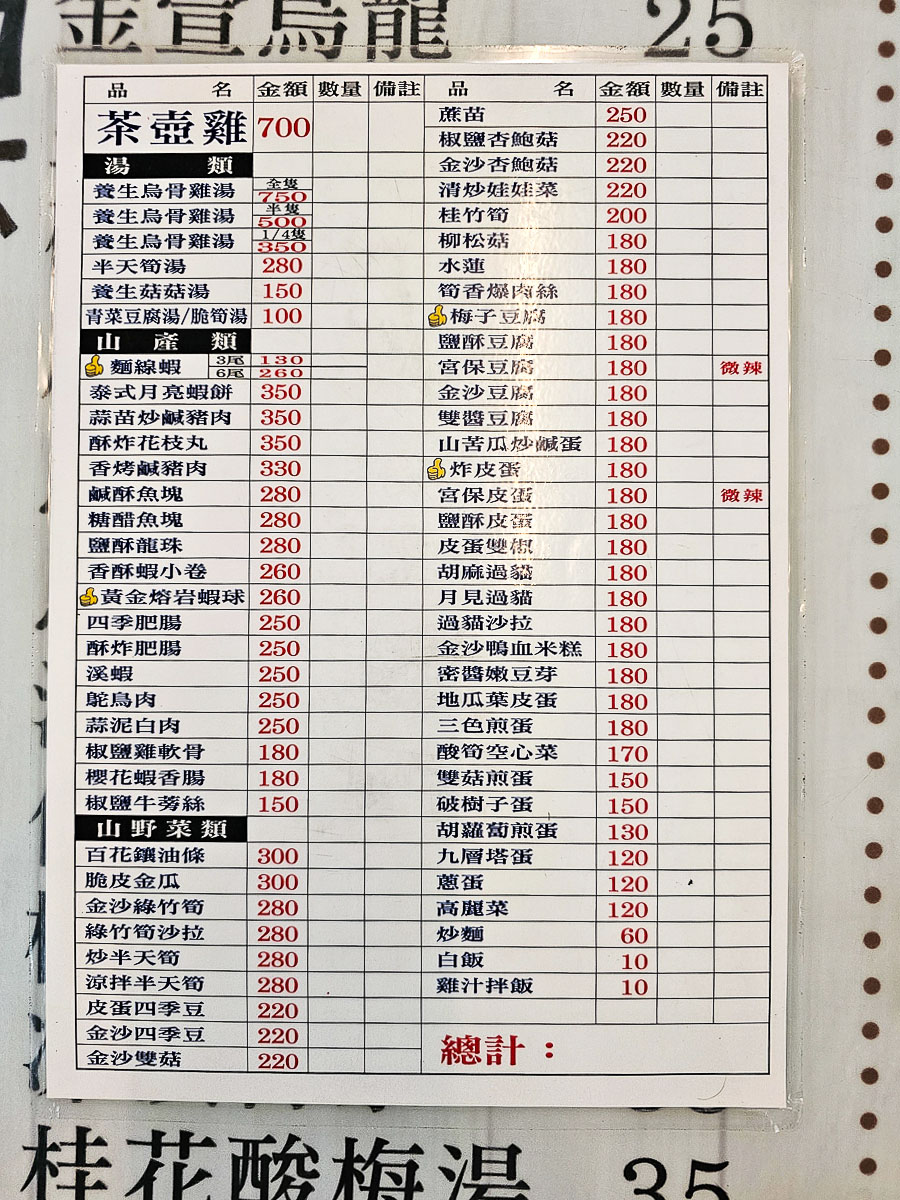 金宣烏龍 25
品名 金額 數量 備註
茶壺雞 700
湯類
養生烏骨雞湯 全隻 750
養生烏骨雞湯 半隻 500
養生烏骨雞湯 1/4隻 350
半天筍湯 280
養生菇菇湯 150
青菜豆腐湯/脆筍湯 100
山產類
麵線蝦 3尾 130
6尾 260
泰式月亮蝦餅 350
蒜苗炒鹹豬肉 350
酥炸花枝丸 350
香烤鹹豬肉 330
鹹酥魚塊 280
糖醋魚塊 280
鹽酥龍珠 280
香酥蝦小卷 260
黃金熔岩蝦球 260
四季肥腸 250
酥炸肥腸 250
溪蝦 250
鴕鳥肉 250
蒜泥白肉 250
椒鹽雞軟骨 180
櫻花蝦香腸 180
椒鹽牛蒡絲 150
山野菜類
百花鑲油條 300
脆皮金瓜 300
金沙綠竹筍 280
綠竹筍沙拉 280
炒半天筍 280
涼拌半天筍 280
皮蛋四季豆 220
金沙四季豆 220
金沙雙菇 220
品名 金額 數量 備註
蔗苗 250
椒鹽杏鮑菇 220
金沙杏鮑菇 220
清炒娃娃菜 220
桂竹筍 200
柳松菇 180
水蓮 180
筍香爆肉絲 180
梅子豆腐 180
鹽酥豆腐 180
宮保豆腐 180 微辣
金沙豆腐 180
雙醬豆腐 180
山苦瓜炒鹹蛋 180
炸皮蛋 180
宮保皮蛋 180 微辣
鹽酥皮蛋 180
皮蛋雙椒 180
胡麻過貓 180
月見過貓 180
過貓沙拉 180
金沙鴨血米糕 180
密醬嫩豆芽 180
地瓜葉皮蛋 180
三色煎蛋 180
酸筍空心菜 170
雙菇煎蛋 150
破樹子蛋 150
胡蘿蔔煎蛋 130
九層塔蛋 120
蔥蛋 120
高麗菜 120
炒麵 60
白飯 10
雞汁拌飯 10
總計：
桂花酸梅湯 35